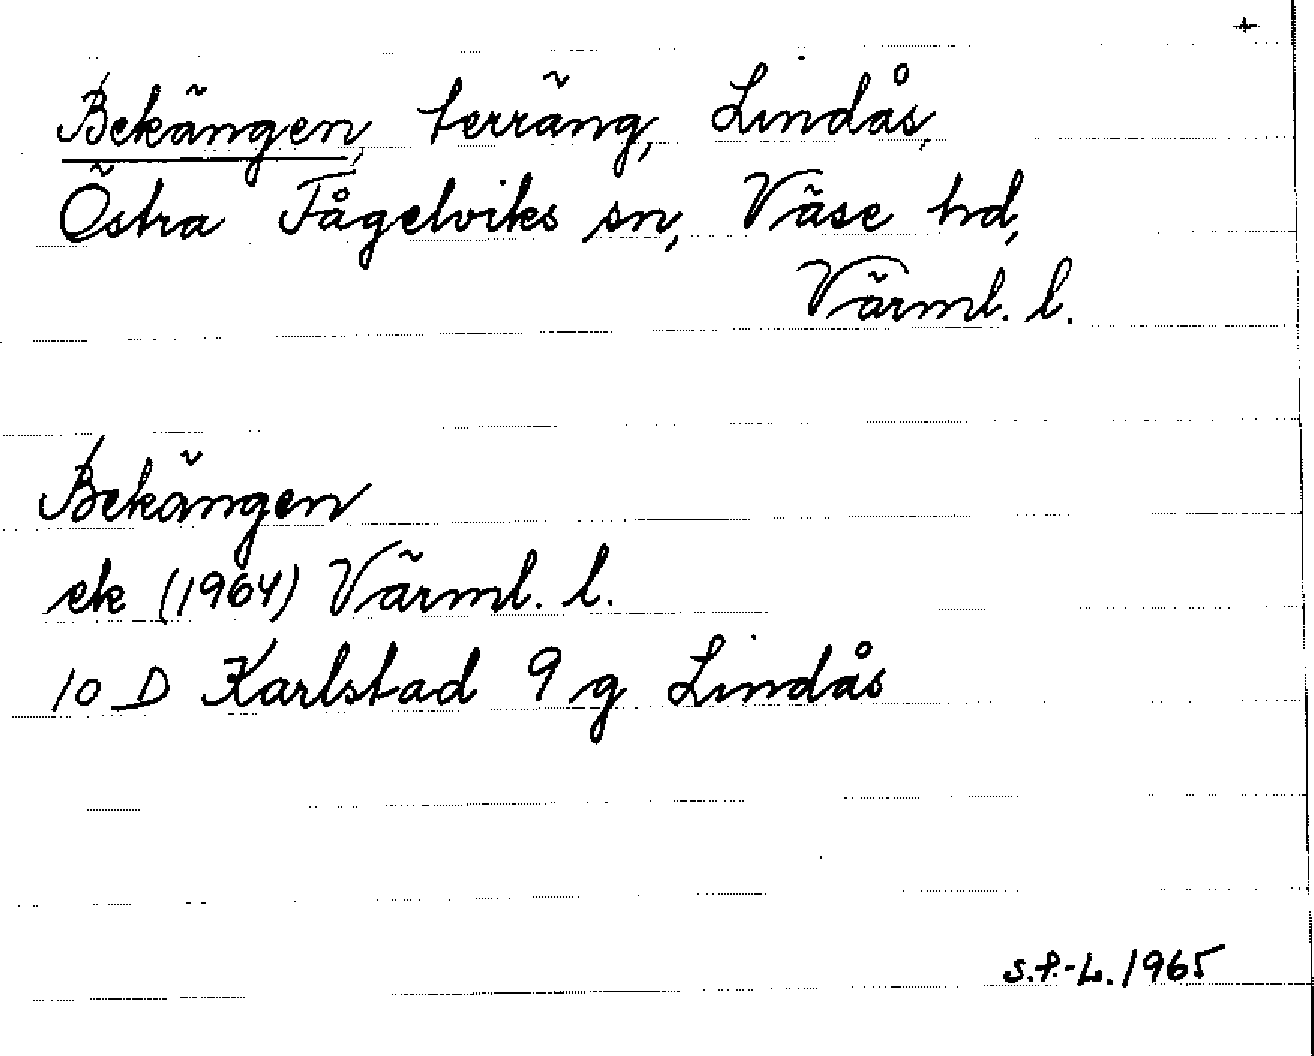 +
Bekängen, terräng, Lindås,
Östra Fågelviks sn, Väse hd,
Värml. l.
Bekängen
ek (1964) Värml. l.
10 D Karlstad 9 g Lindås
S.P.-L. 1965